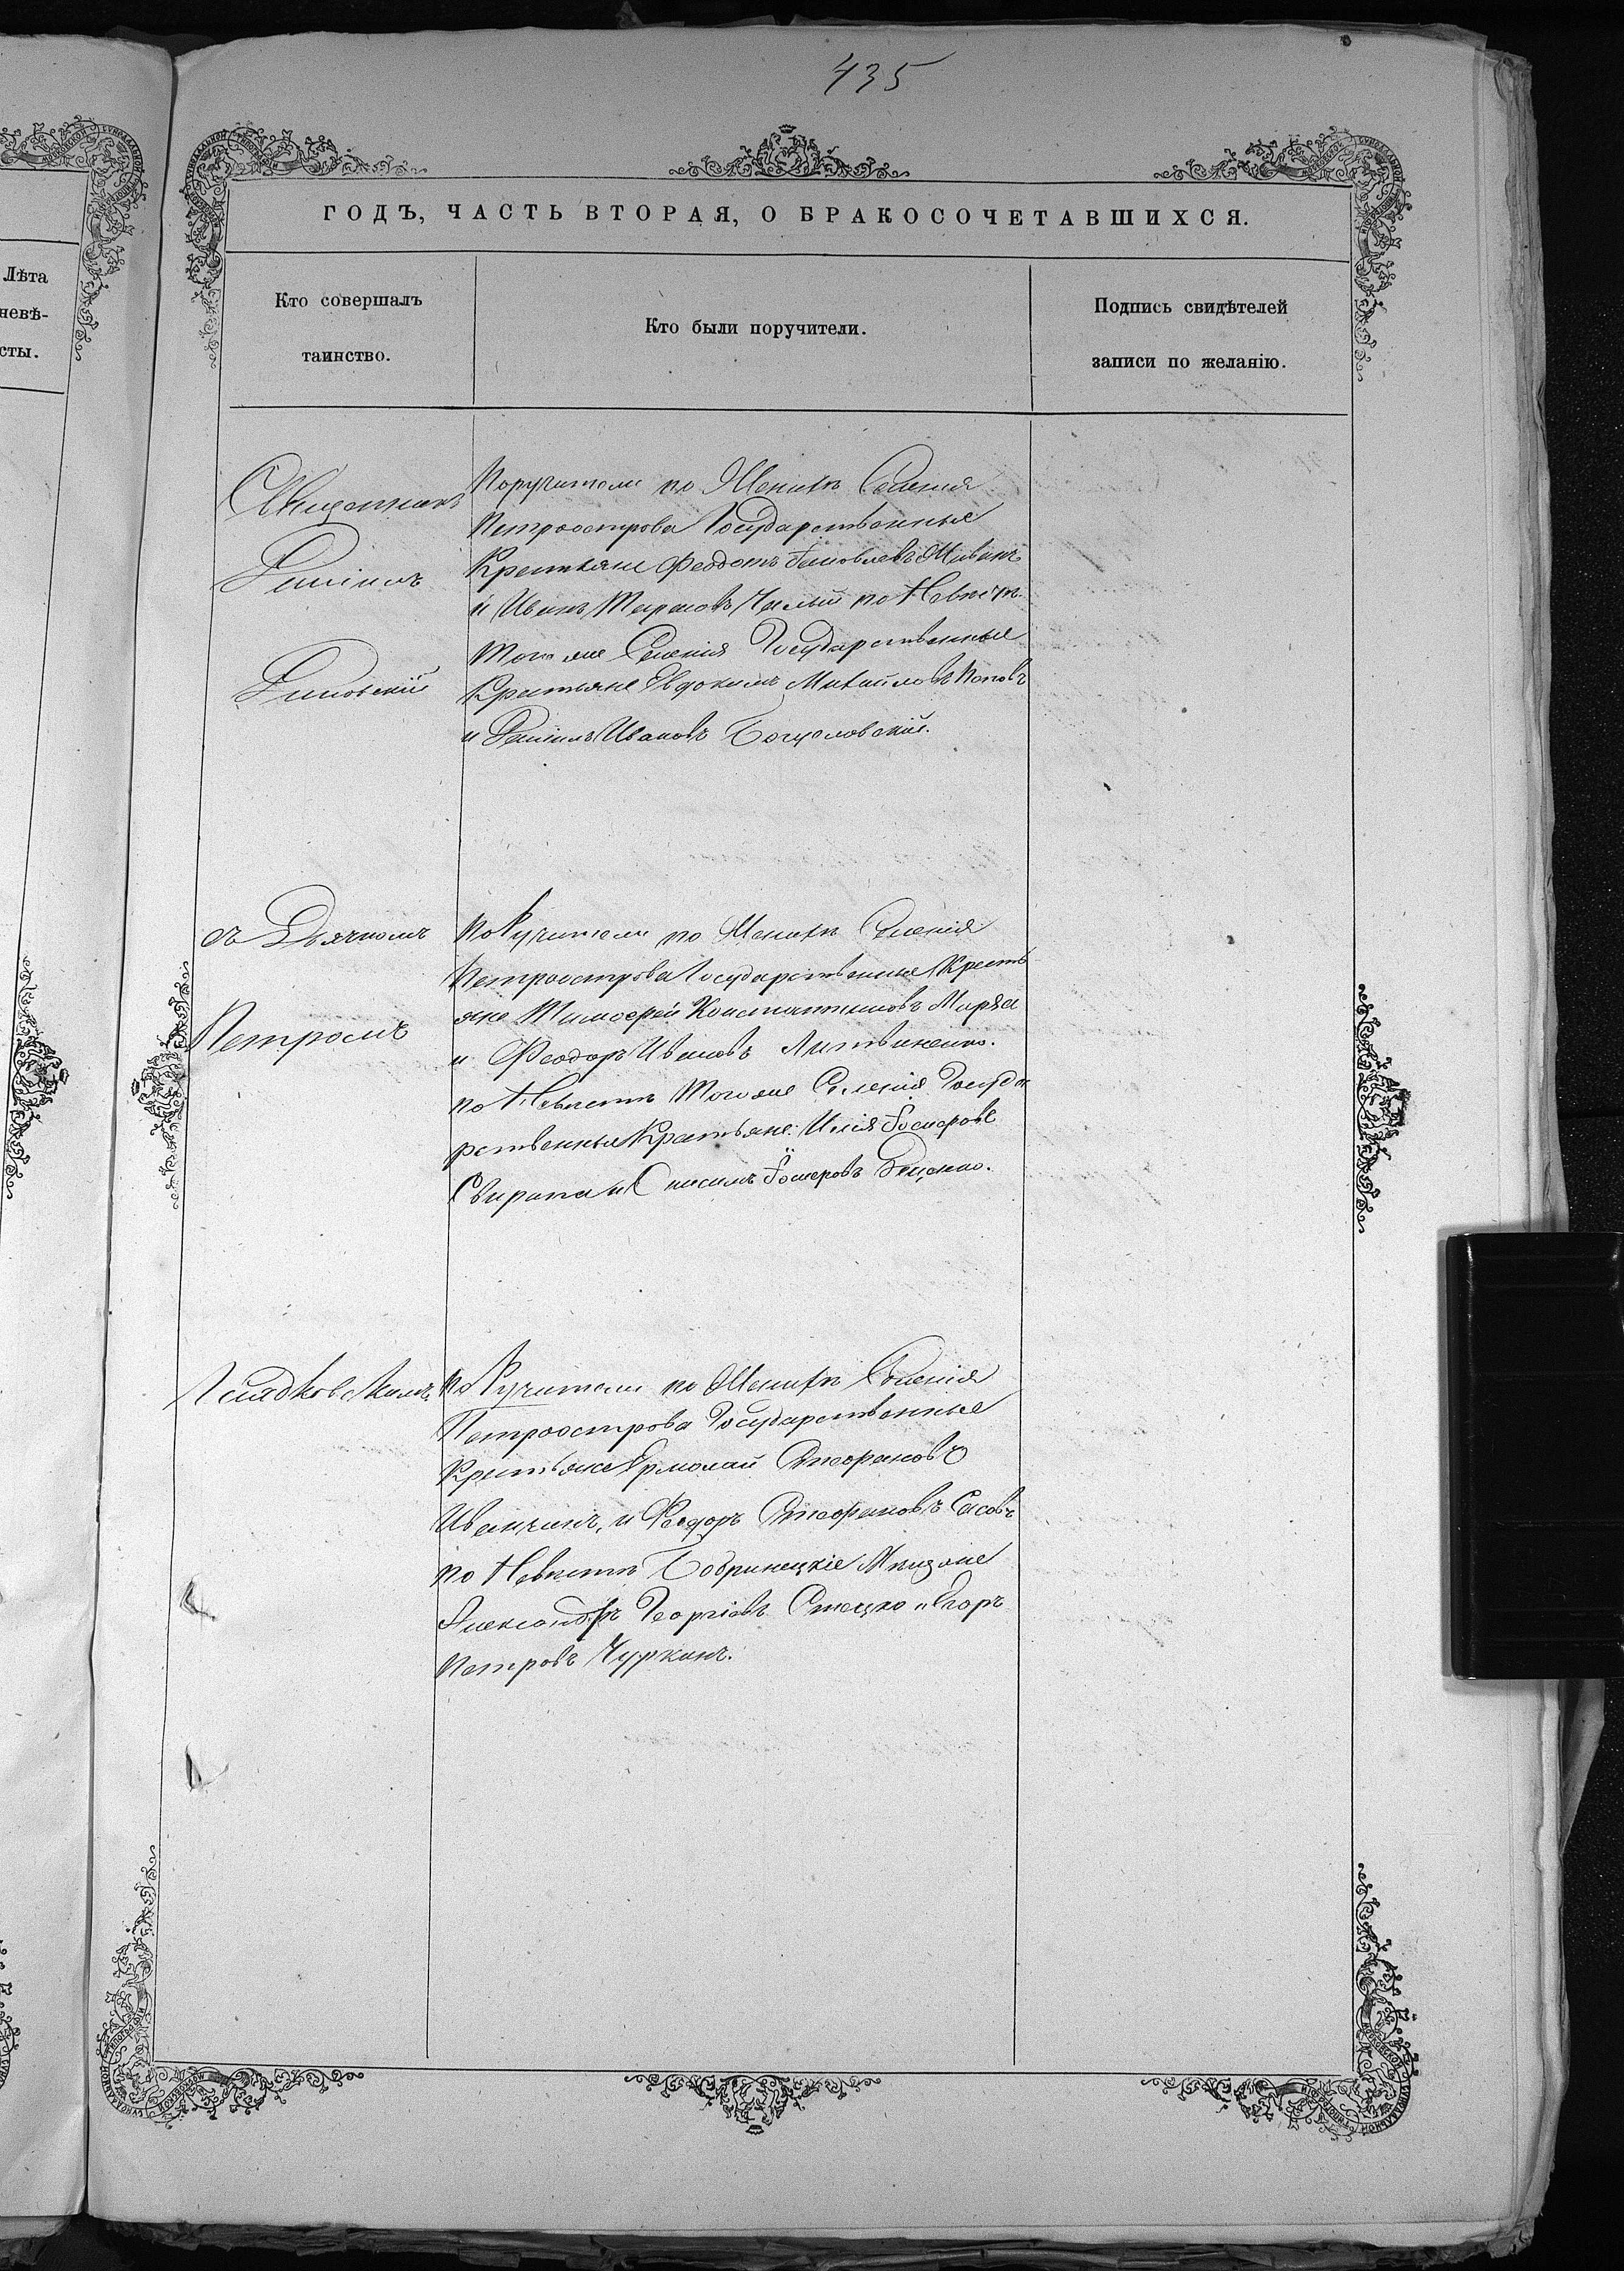 435
ГОДЪ, ЧАСТЬ ВТОРАЯ, О БРАКОСОЧЕТАВШИХСЯ.
Лѣта
невѣ-
сты.
Кто совершалъ
таинство.
Кто были поручители.
Подпись свидѣтелей
записи по желанію.
Священникъ
Даніилъ
Поручители по Женихѣ Селенія
Петроострова Государственные
Крестьяне Феодотъ Яковлевъ
и Иванъ Тарасовъ по Невѣстѣ
того же Селенія Государственные
Крестьяне Евдокимъ Михайловъ Поповъ
и Даніилъ Ивановъ Богуславскій.
съ Дьячкомъ
Петромъ
Поручители по Женихѣ Селенія
Петроострова Государственные Кресть
яне Тимофей Константиновъ
и Феодоръ Ивановъ Литвиненко.
по Невѣстѣ того же Селенія Государ
рственные Крестьяне: Илія
Свирипа и Онисимъ
Гладковскимъ
Поручители по Женихѣ Селенія
Петроострова Государственные
Крестьяне Ермолай Стефановъ
Иванчикъ, и Феодоръ Стефановъ
по Невѣстѣ Бобринецкіе Мѣщане
Александръ Георгіевъ Стецко и Егоръ
Петровъ Чурканъ.